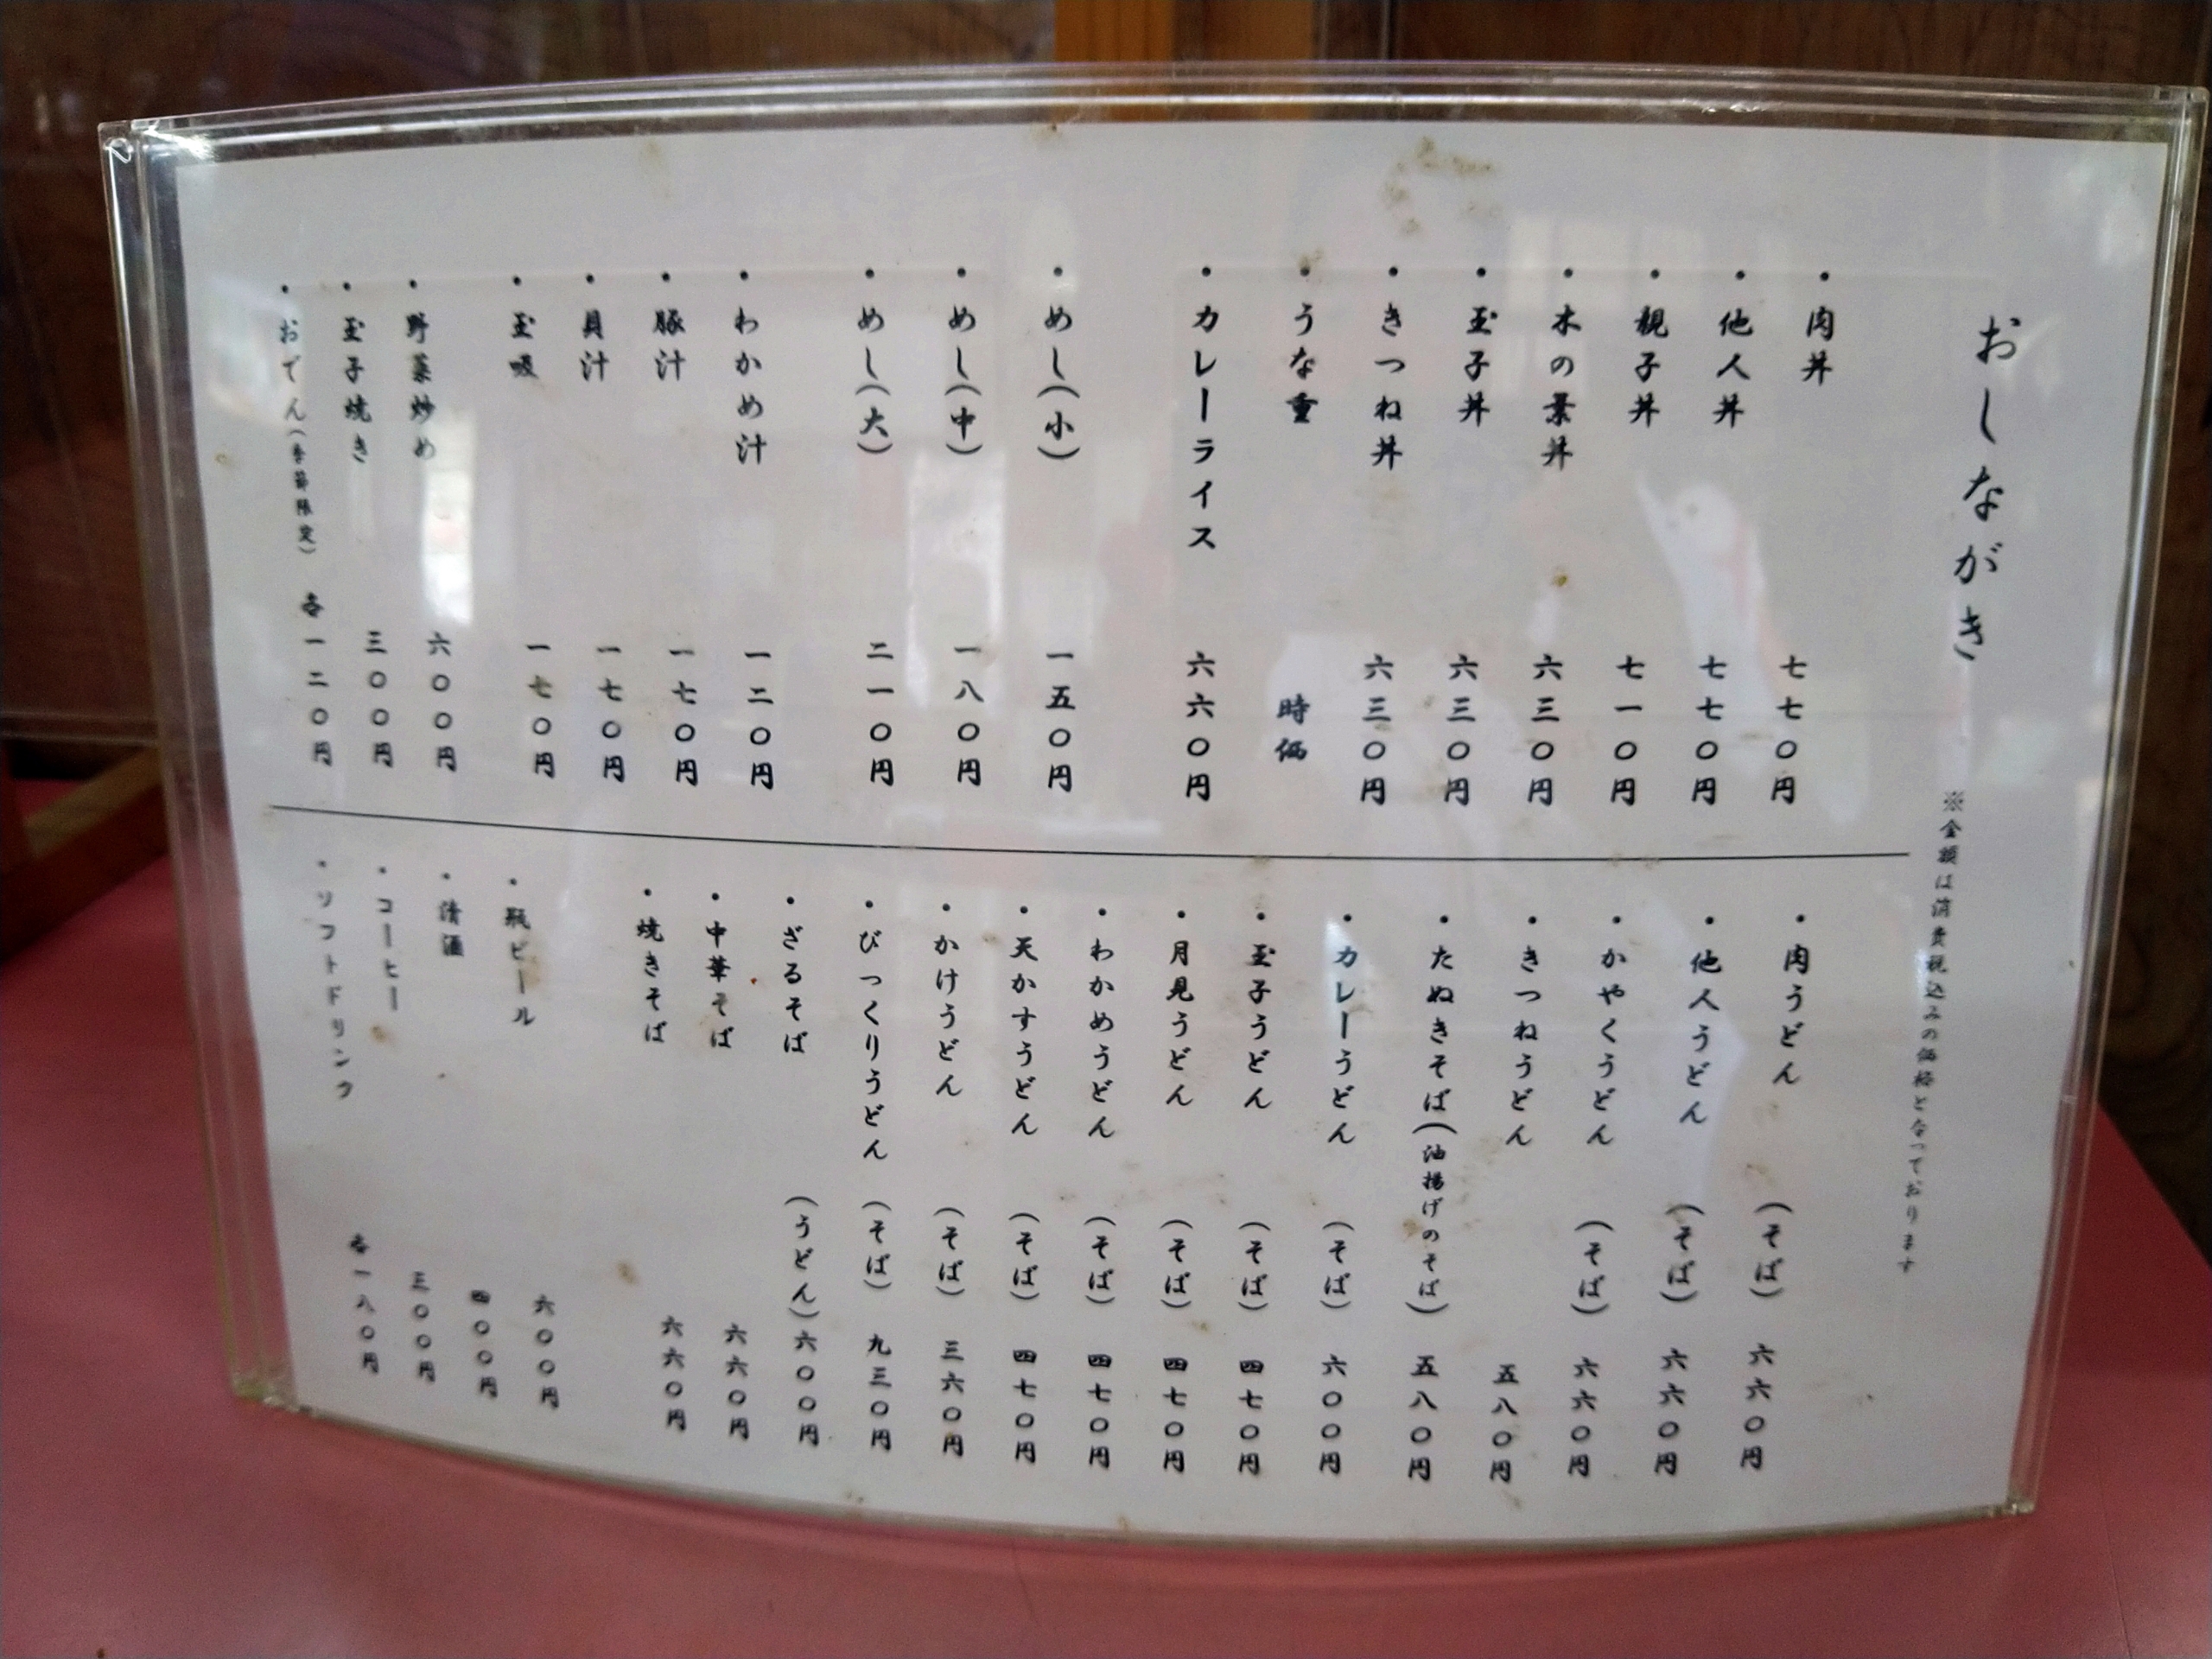 おしながき
※金額は消費税込みの価格となっております
・肉丼 七七〇円
・他人丼 七七〇円
・親子丼 七一〇円
・木の葉丼 六三〇円
・玉子丼 六三〇円
・きつね丼 六三〇円
・うな重 時価
・カレーライス 六六〇円
・めし(小) 一五〇円
・めし(中) 一八〇円
・めし(大) 二一〇円
・わかめ汁 一二〇円
・豚汁 一七〇円
・貝汁 一七〇円
・玉吸 一七〇円
・野菜炒め 六〇〇円
・玉子焼き 三〇〇円
・おでん(季節限定) 各一二〇円
・肉うどん (そば) 六六〇円
・他人うどん (そば) 六六〇円
・かやくうどん (そば) 六六〇円
・きつねうどん 五八〇円
・たぬきそば(油揚げのそば) 五八〇円
・カレーうどん (そば) 六〇〇円
・玉子うどん (そば) 四七〇円
・月見うどん (そば) 四七〇円
・わかめうどん (そば) 四七〇円
・天かすうどん (そば) 四七〇円
・かけうどん (そば) 三六〇円
・びっくりうどん (そば) 九三〇円
・ざるそば (うどん) 六〇〇円
・中華そば 六六〇円
・焼きそば 六六〇円
・瓶ビール 六〇〇円
・清酒 四〇〇円
・コーヒー 三〇〇円
・ソフトドリンク 各一八〇円